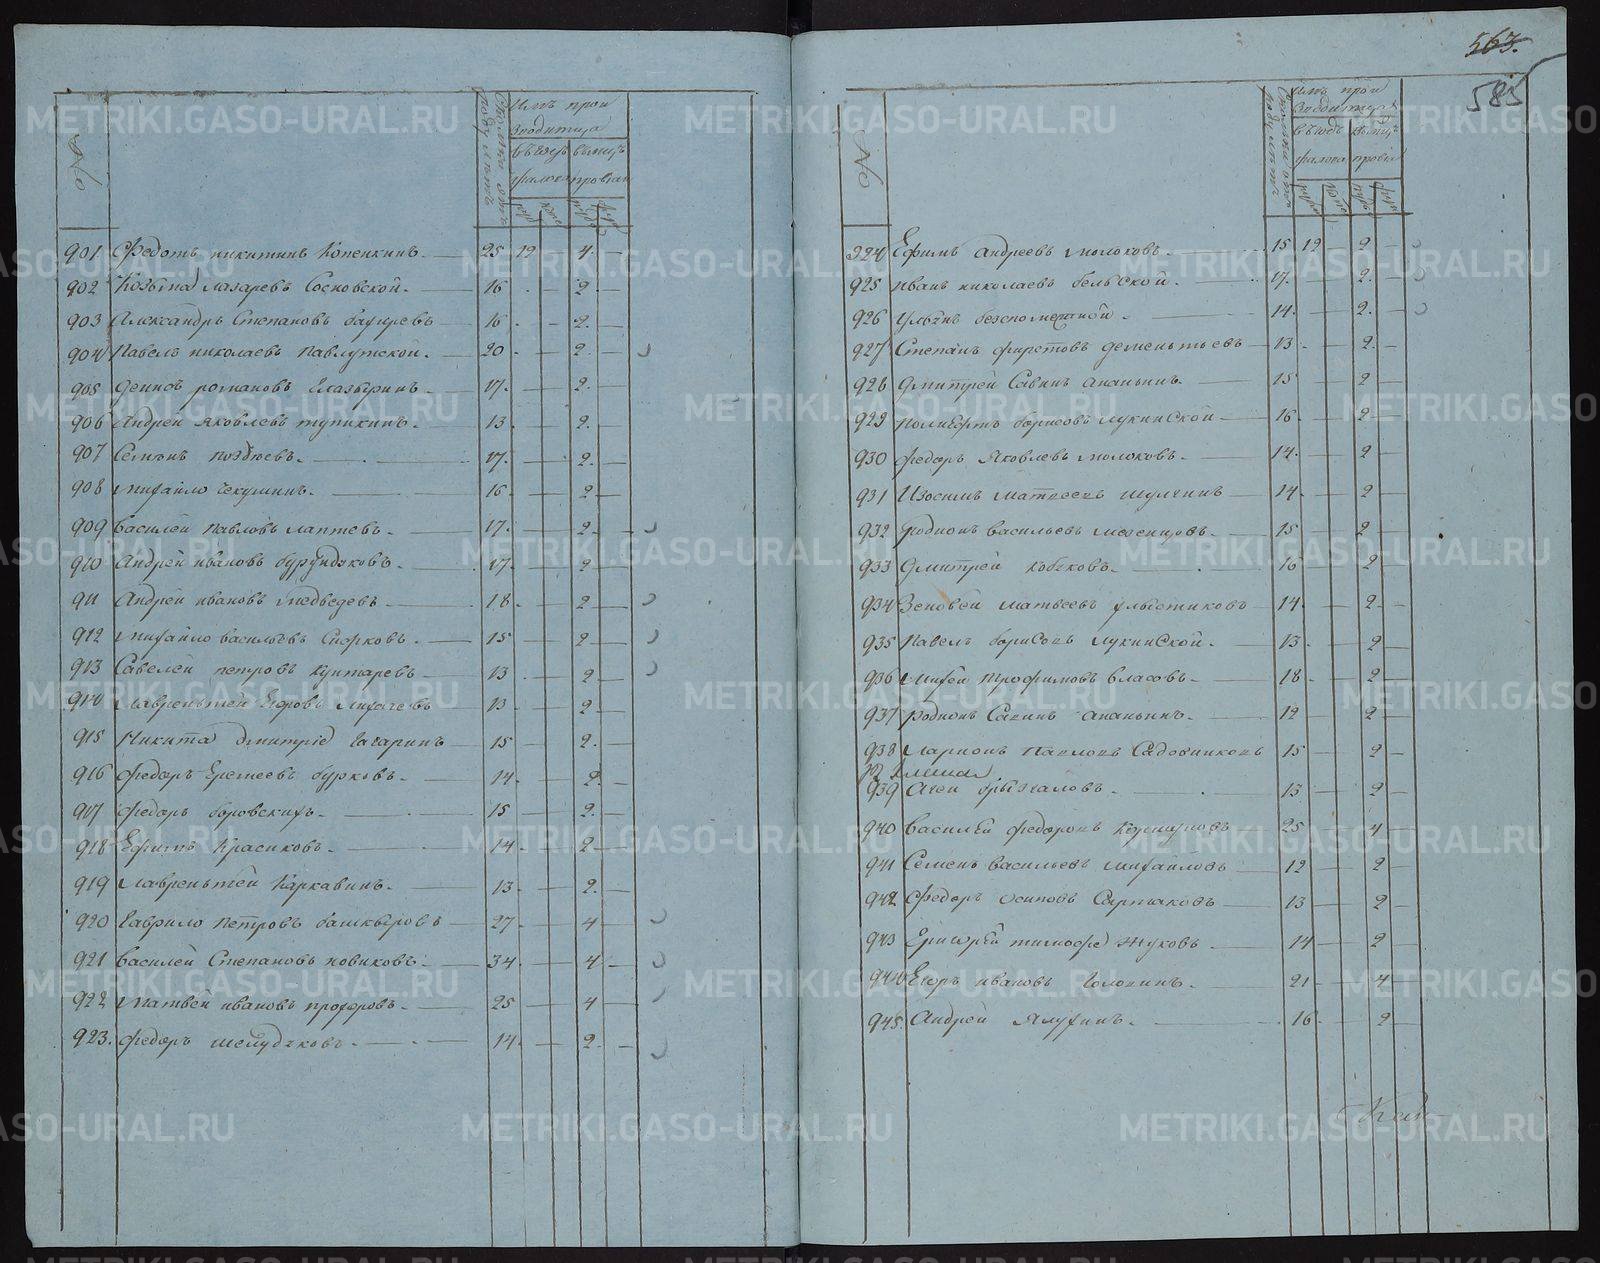 563.
585
№
имъ прои
зводитца
901 Федотъ никитинъ Копенкинъ. 25 12 4.
902 Козьма лазаревъ Сосновской. 16 2.
903 Александръ Степановъ 16 2.
904 Павелъ николаевъ Павлуцкой. 20 2.
905 денисъ романовъ Глазыринъ 17. 2.
906 Андрей Яковлевъ тупикинъ. 13. 2.
907 Семенъ поздеевъ. 17. 2.
908 михайло Чекушинъ. 16 2
909 василей павловъ лаптевъ. 17. 2.
910 Андрей ивановъ бурундуковъ. 17 2
911 Андрей ивановъ медведевъ 18. 2
912 михайло васильевъ Сырковъ. 15 2
913 Савелей петровъ 13 2
914 лаврентей Егоровъ лихачевъ 13 2
915 Никита дмитрие Гагаринъ 15 2.
916 федоръ Еремеевъ бурковъ. 14 2.
917 федоръ боровскихъ. 15 2.
918 Ефимъ Красиковъ. 14 2
919 лаврентей Каркавинъ. 13. 2.
920 Гаврило петровъ башкыровъ 27 4
921 василей Степановъ новиковъ. 34 4
922 матвей ивановъ прохоровъ. 25 4
923. федоръ шелудяковъ. 14. 2.
№
имъ прои
зводитца
924 Ефимъ андреевъ молоковъ. 15 12 2
925 иванъ николаевъ бельской. 17. 2.
926 ульянъ безпомещной. 14. 2.
927 Степанъ дементьевъ 13 2
928 дмитрей Савинъ ананьинъ. 15 2
929 борисовъ лукинской 16. 2
930 федоръ Яковлевъ молоковъ. 14. 2
931 Изосимъ матвеевъ шулгинъ 14 2
932 родионъ васильевъ мезенцовъ. 15 2
933 дмитрей кобяковъ. 16 2
934 Зеновей матвеевъ хлыстиковъ 14. 2.
935 Павелъ борисовъ лукинской. 13 2
936 михей трофимовъ власовъ. 18 2
937 родионъ Савинъ ананьинъ. 12 2
938 ларионъ павловъ Садовниковъ 15 2
939 Агей брызгаловъ. 13 2
940 василей федоровъ 25 4
941 Семенъ васильевъ михайловъ 12 2
942 федоръ осиповъ Сартаковъ 13 2
943 Григорей тимофе Жуковъ 14 2
944 Егоръ ивановъ Головинъ. 21 4
945. Андрей Ялухинъ. 16 2